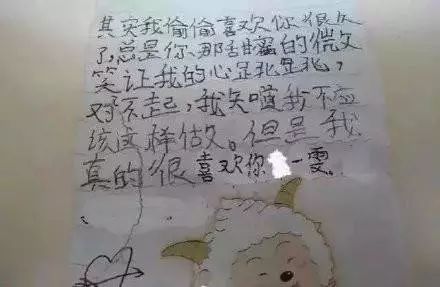 其实我偷偷喜欢你很久
了,总是你那甜蜜的微
笑让我的心跳跳,
对不起,我知道我不应
该这样做。但是我
真的很喜欢你 一雯。